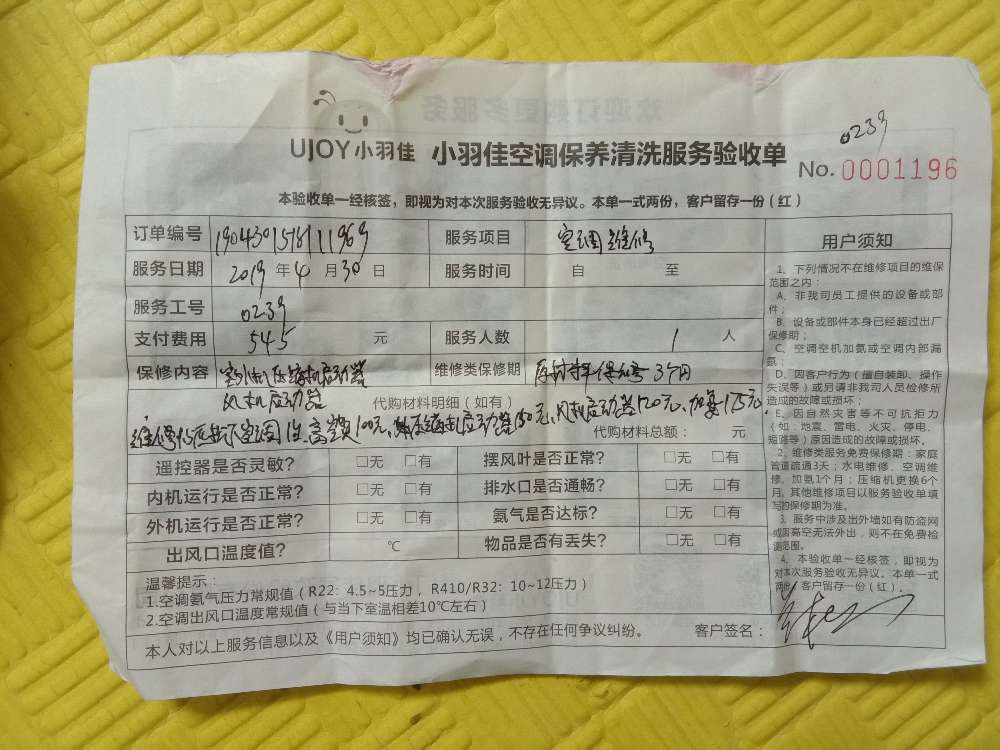 UJOY小羽佳 小羽佳空调保养清洗服务验收单
0239
No. 0001196
本验收单一经核签，即视为对本次服务验收无异议。本单一式两份，客户留存一份（红）
订单编号 服务项目 空调维修
服务日期 2019 年 4 月 30 日 服务时间 自 至
服务工号 0239
支付费用 545 元 服务人数 1 人
保修内容 室外机压缩机启动器 维修类保修期 3个月
风机启动器 代购材料明细（如有）
高额100元、 风机启动器120元、加氟175元
代购材料总额： 元
遥控器是否灵敏？ □无 □有 摆风叶是否正常？ □无 □有
内机运行是否正常？ □无 □有 排水口是否通畅？ □无 □有
外机运行是否正常？ □无 □有 氨气是否达标？ □无 □有
出风口温度值？ ℃ 物品是否有丢失？ □无 □有
温馨提示：
1.空调氨气压力常规值（R22：4.5~5压力， R410/R32：10~12压力）
2.空调出风口温度常规值（与当下室温相差10℃左右）
本人对以上服务信息以及《用户须知》均已确认无误，不存在任何争议纠纷。 客户签名：
用户须知
1、下列情况不在维修项目的维保
范围之内：
A、非我司员工提供的设备或部
件；
B、设备或部件本身已经超过出厂
保修期；
C、空调空机加氨或空调内部漏
氨；
D、因客户行为（擅自装卸、操作
失误等）或另请非我司人员检修所
造成的故障或损坏；
E、因自然灾害等不可抗拒力
（如：地震、雷电、火灾、停电、
短路等）原因造成的故障或损坏。
2、维修类服务免费保修期：家庭
管道疏通3天；水电维修、空调维
修、加氨1个月；压缩机更换6个
月。其他维修项目以服务验收单填
写的保修期为准。
3、服务中涉及出外墙如有防盗网
或因高空无法外出，则不在免费检
范围。
4、本验收单一经核签，即视为
对本次服务验收无异议。本单一式
两份，客户留存一份（红）.